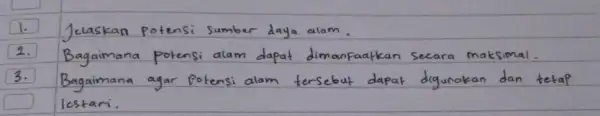 1. Jelaskan potensi sumber daya alam.
2. Bagaimana potensi alam dapat dimanfaatkan secara maksimal.
3. Bagaimana agar potensi alam tersebut dapat digunakan dan tetap
lestari.